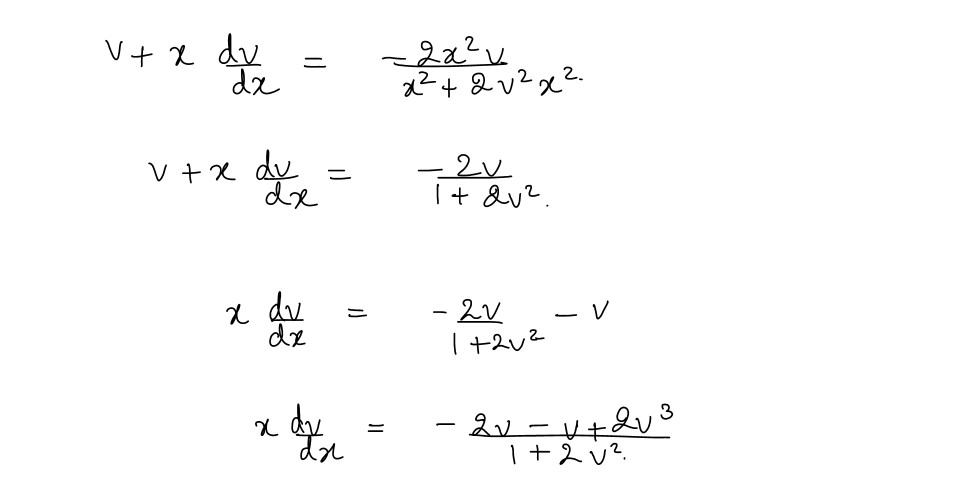 v + x dv/dx = -2x²v / x² + 2v²x².
v + x dv/dx = -2v / 1 + 2v².
x dv/dx = -2v / 1 + 2v² - v
x dv/dx = -2v - v + 2v³ / 1 + 2v².